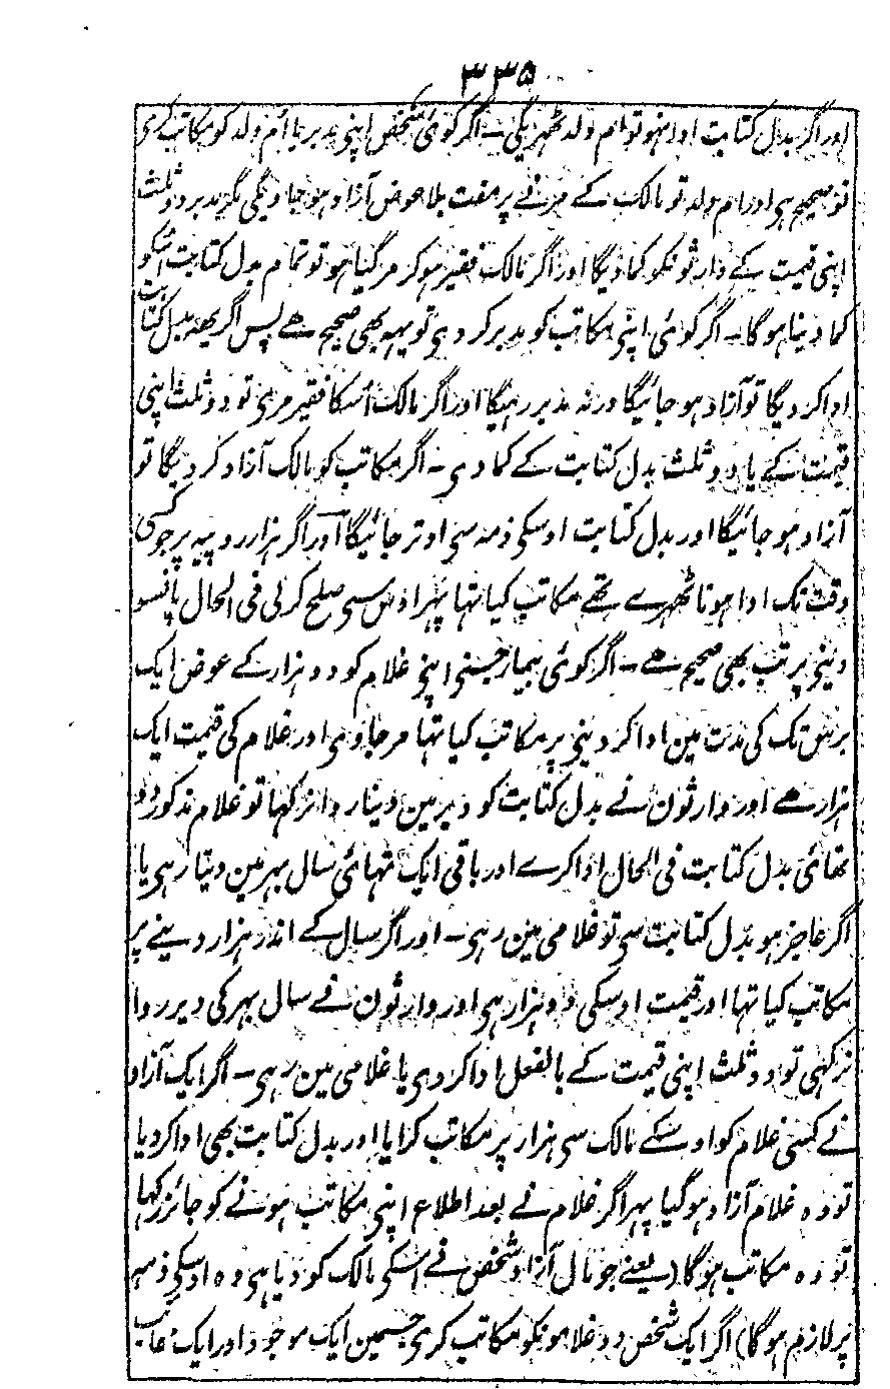 ۳۳۵
اور اگر بدل کتابت ادا نہو تو ام ولد ٹھریگی۔ اگر کوئی شخص اپنی مدبر یا اُم ولد کو مکاتب کری
تو صحیح ہی اور ام ولد تو مالک کے مرنے پر مفت بلا عوض آزاد ہو جاویگی مگر مدبر دو ثلث
اپنی قیمت کے وارثونکو کما دیگا اور اگر مالک فقیر ہو کر مر گیا ہو تو تمام بدل کتابت اسکو
کما دینا ہوگا۔ اگر کوئی اپنی مکاتب کو مدبر کر دی تو یہہ بھی صحیح ھے پس اگر یھہ بدل کتابت
ادا کر دیگا تو آزاد ہو جائیگا ورنہ مدبر رہیگا اور اگر مالک اُسکا فقیر مری تو دو ثلث اپنی
قیمت کے یا دو ثلث بدل کتابت کے کما دی۔ اگر مکاتب کو مالک آزاد کر دیگا تو
آزاد ہو جائیگا اور بدل کتابت اوسکی ذمہ سی اوتر جائیگا اور اگر ہزار روپیہ پر جو کسی
وقت تک ادا ہونا ٹھہرے تھے مکاتب کیا تہا پہر اوس سی صلح کر لی فی الحال پانسو
دینی پر تب بھی صحیح ھے۔ اگر کوئی بیمار جسنی اپنی غلام کو دو ہزار کے عوض ایک
برس تک کی مدت مین ادا کر دینی پر مکاتب کیا تہا مر جاوی اور غلام کی قیمت ایک
ہزار ھے اور وارثون نے بدل کتابت کو دیر مین دینا روا نرکہا تو غلام مذکور دو
تھائی بدل کتابت فی الحال ادا کرے اور باقی ایک تہائی سال بہر مین دیتا رہی یا
اگر عاجز ہو بدل کتابت سی تو غلامی مین رہی۔ اور اگر سال کے اندر ہزار دینے پر
مکاتب کیا تہا اور قیمت اوسکی دو ہزار ہی اور وارثون نے سال بہر کی دیر روا
نرکہی تو دو ثلث اپنی قیمت کے بالفعل ادا کر دی یا غلامی مین رہی۔ اگر ایک آزاد
نے کسی غلام کو اوسکے مالک سی ہزار پر مکاتب کرایا اور بدل کتابت بھی ادا کر دیا
تو وہ غلام آزاد ہو گیا پہر اگر غلام نے بعد اطلاع اپنی مکاتب ہونے کو جائز رکہا
تو وہ مکاتب ہوگا (یعنے جو مال آزاد شخص نے اسکی مالک کو دیا ہی وہ اوسکی ذمہ
پر لازم ہوگا) اگر ایک شخص دو غلامونکو مکاتب کری جسمین ایک موجود اور ایک غائب